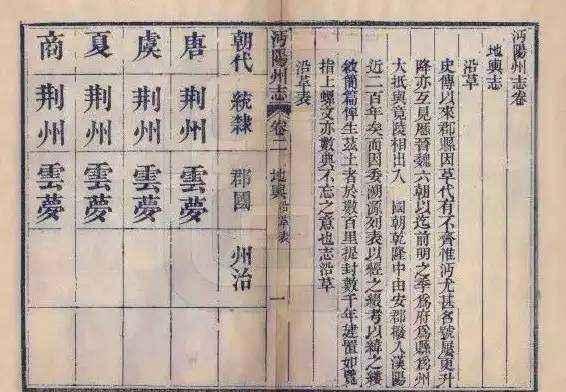 沔陽州志卷
地輿志
沿革
史傳以來郡縣因革代有不齊惟沔尤甚名號屢更升
降亦互見歷晉魏六朝以迄前明之季為府為縣為州
大抵與竟陵相出入 國朝乾隆中由安郡撥入漢陽
近二百年矣而因委溯源列表以經之續考以緯之
敘簡篇俾生茲土者於數百里提封數千年建置如覽
指上螺文亦數典不忘之意也志沿革
沿革表
沔陽州志 卷二 地輿 沿革表 一
朝代 統隸 郡國 州治
唐 荆州 雲夢
虞 荆州 雲夢
夏 荆州 雲夢
商 荆州 雲夢